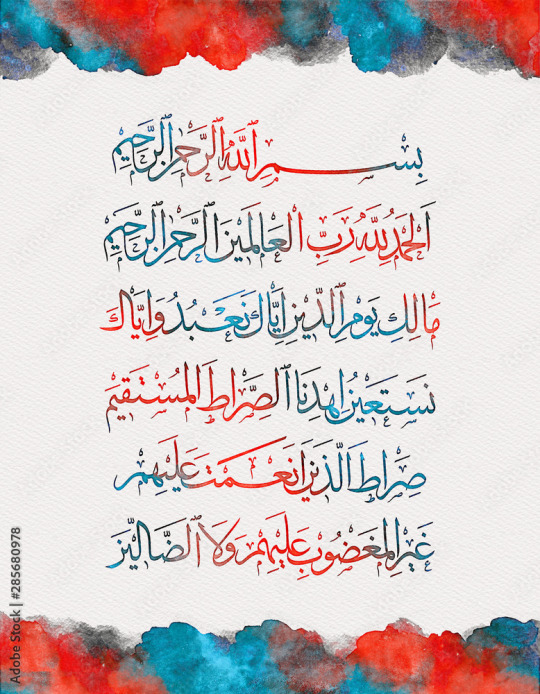 بِسْمِ ٱللَّهِ ٱلرَّحْمٰنِ ٱلرَّحِيمِ
اَلْحَمْدُ لِلَّهِ رَبِّ الْعَالَمِينَ ٱلرَّحْمٰنِ ٱلرَّحِيمِ
مَالِكِ يَوْمِ ٱلدِّينِ اِيَّاكَ نَعْبُدُ وَاِيَّاكَ
نَسْتَعِينُ اِهْدِنَا ٱلصِّرَاطَ الْمُسْتَقِيمَ
صِرَاطَ الَّذِينَ اَنْعَمْتَ عَلَيْهِمْ
غَيْرِ الْمَغْضُوبِ عَلَيْهِمْ وَلَا ٱلضَّالِّينَ
Adobe Stock | #285680978